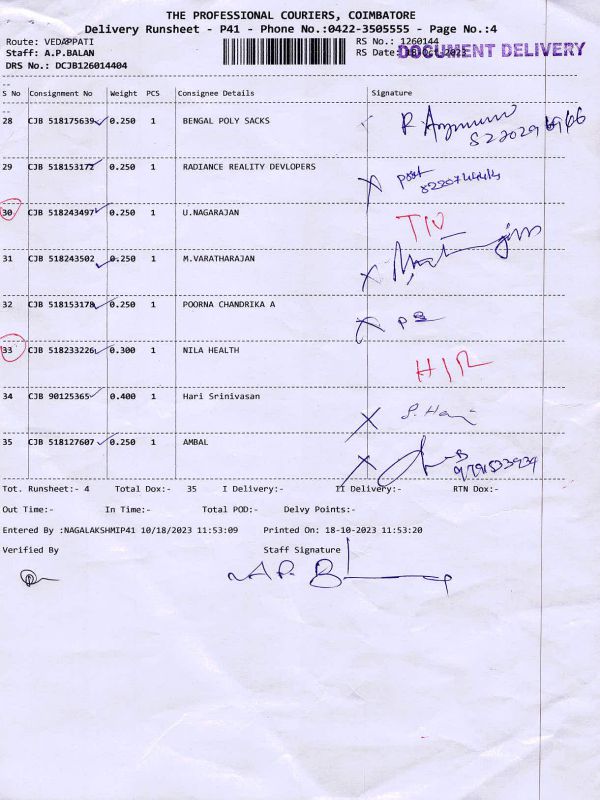 THE PROFESSIONAL COURIERS, COIMBATORE
Delivery Runsheet - P41 - Phone No.:0422-3505555 - Page No.:4
Route: VEDAPPATI RS No.: 1260144
Staff: A.P.BALAN RS Date: 18-Oct-2023
DOCUMENT DELIVERY
DRS No.: DCJB126014404
S No Consignment No Weight PCS Consignee Details Signature
28 CJB 518175639 0.250 1 BENGAL POLY SACKS
29 CJB 518153172 0.250 1 RADIANCE REALITY DEVLOPERS
30 CJB 518243497 0.250 1 U.NAGARAJAN
31 CJB 518243502 0.250 1 M.VARATHARAJAN
32 CJB 518153178 0.250 1 POORNA CHANDRIKA A
33 CJB 518233226 0.300 1 NILA HEALTH H/R
34 CJB 90125365 0.400 1 Hari Srinivasan
35 CJB 518127607 0.250 1 AMBAL
Tot. Runsheet:- 4 Total Dox:- 35 I Delivery:- II Delivery:- RTN Dox:-
Out Time:- In Time:- Total POD:- Delvy Points:-
Entered By :NAGALAKSHMIP41 10/18/2023 11:53:09 Printed On: 18-10-2023 11:53:20
Verified By Staff Signature